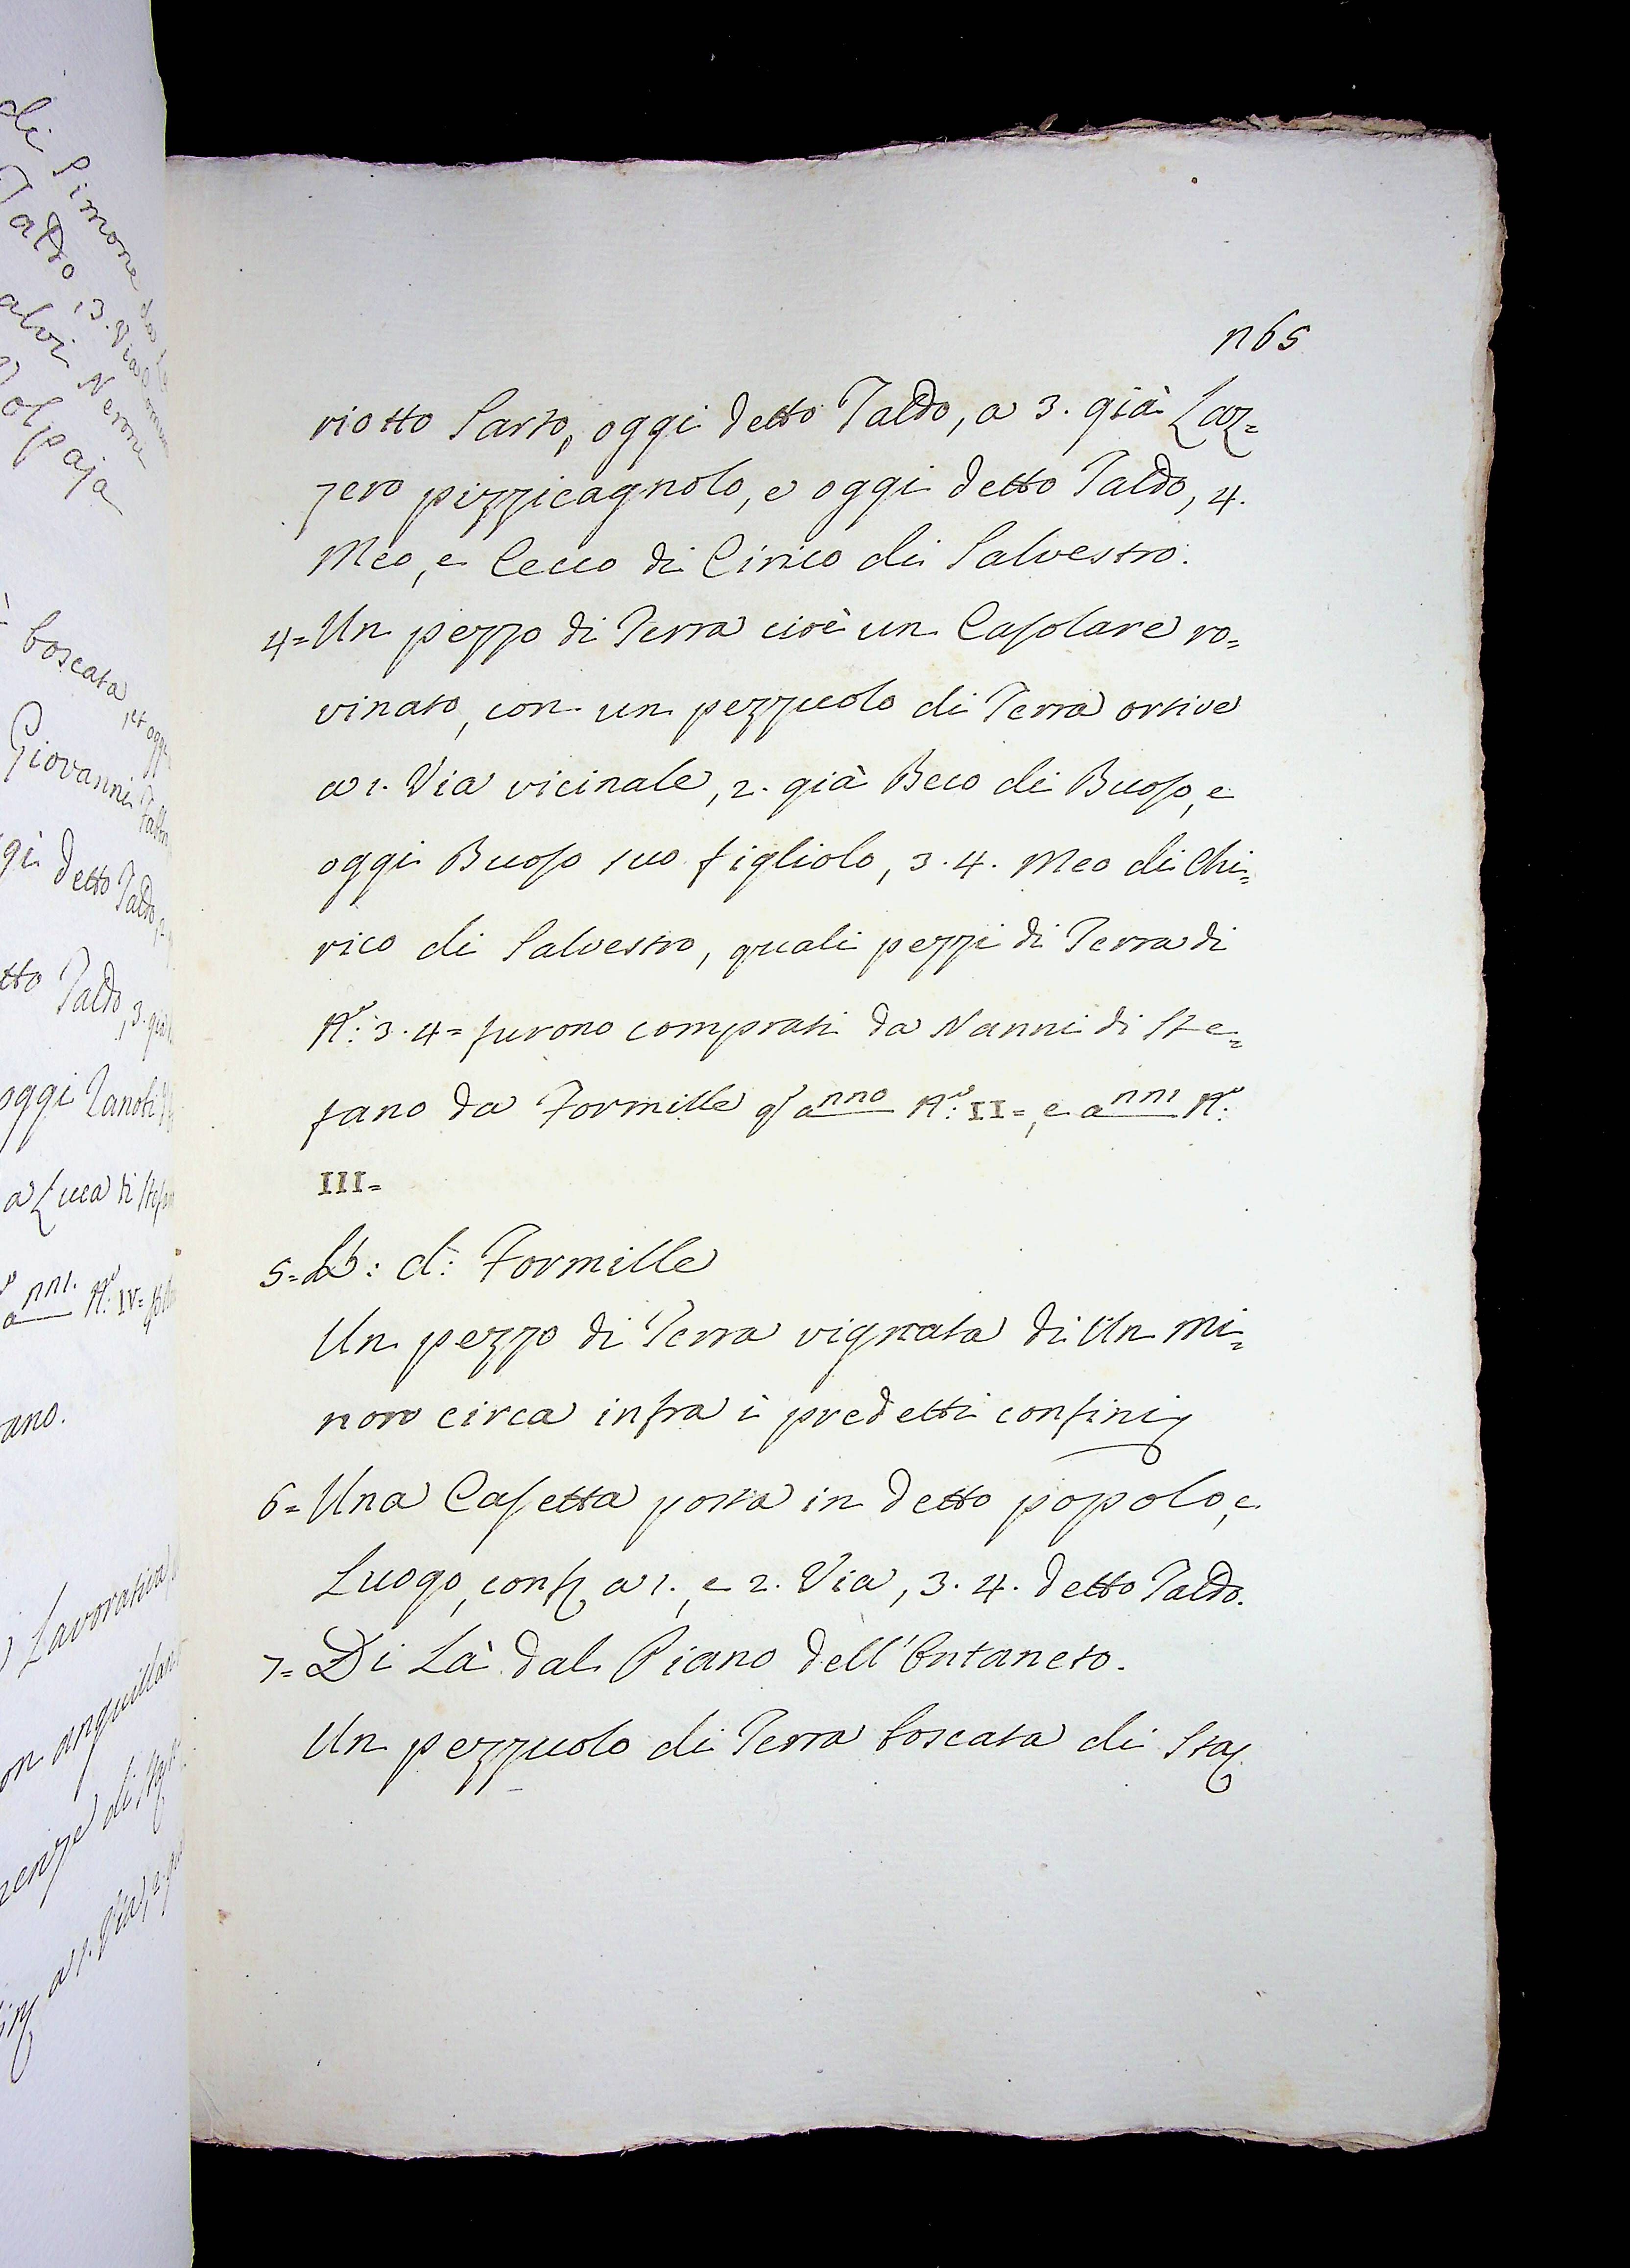 n65
riotto Sarto, oggi detto Taldo, a 3. già Laz=
zero pizzicagnolo, e oggi detto Taldo, 4.
Meo, e Cecco di Cirico di Salvestro.
4= Un pezzo di Terra cioè un Casolare ro=
vinato, con un pezzuolo di Terra ortive
a 1. Via vicinale, 2. già Beco di Buoso, e
oggi Buoso suo figliolo, 3. 4. Meo di Chi=
rico di Salvestro, quali pezzi di Terra di
Nº: 3. 4= furono comprati da Nanni di Ste=
fano da Formille anno Nº: II=, e anni Nº:
III=
5= Lº: dº: Formille
Un pezzo di Terra vignata di Un mi=
noro circa infra i predetti confini
6= Una Casetta posta in detto popolo, e
Luogo, conf. a 1., e 2. Via, 3. 4. detto Taldo.
7= Di Là dal Piano dell'
Un pezzuolo di Terra boscata di Sta.
di Simone
Taldo, 3. Via
Nerone
Volpaja
boscata
Giovanni
detto Taldo
Taldo, 3. già
oggi Zanobi
a Luca di
nni. Nº: IV=
ano.
Lavorativa
a 1. Via, 2.